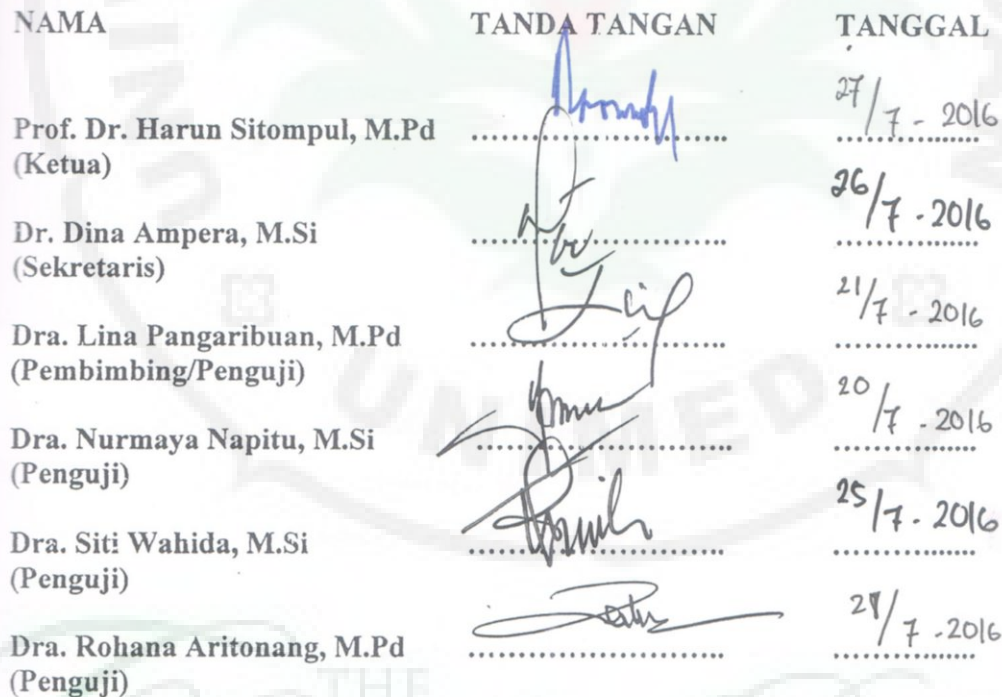 NAMA TANDA TANGAN TANGGAL
27/7 - 2016
Prof. Dr. Harun Sitompul, M.Pd ..............................
(Ketua)
26/7 - 2016
Dr. Dina Ampera, M.Si ..............................
(Sekretaris)
21/7 - 2016
Dra. Lina Pangaribuan, M.Pd ..............................
(Pembimbing/Penguji)
20/7 - 2016
Dra. Nurmaya Napitu, M.Si ..............................
(Penguji)
25/7 - 2016
Dra. Siti Wahida, M.Si ..............................
(Penguji)
/7 - 2016
Dra. Rohana Aritonang, M.Pd ..............................
(Penguji)
UNIMED
THE